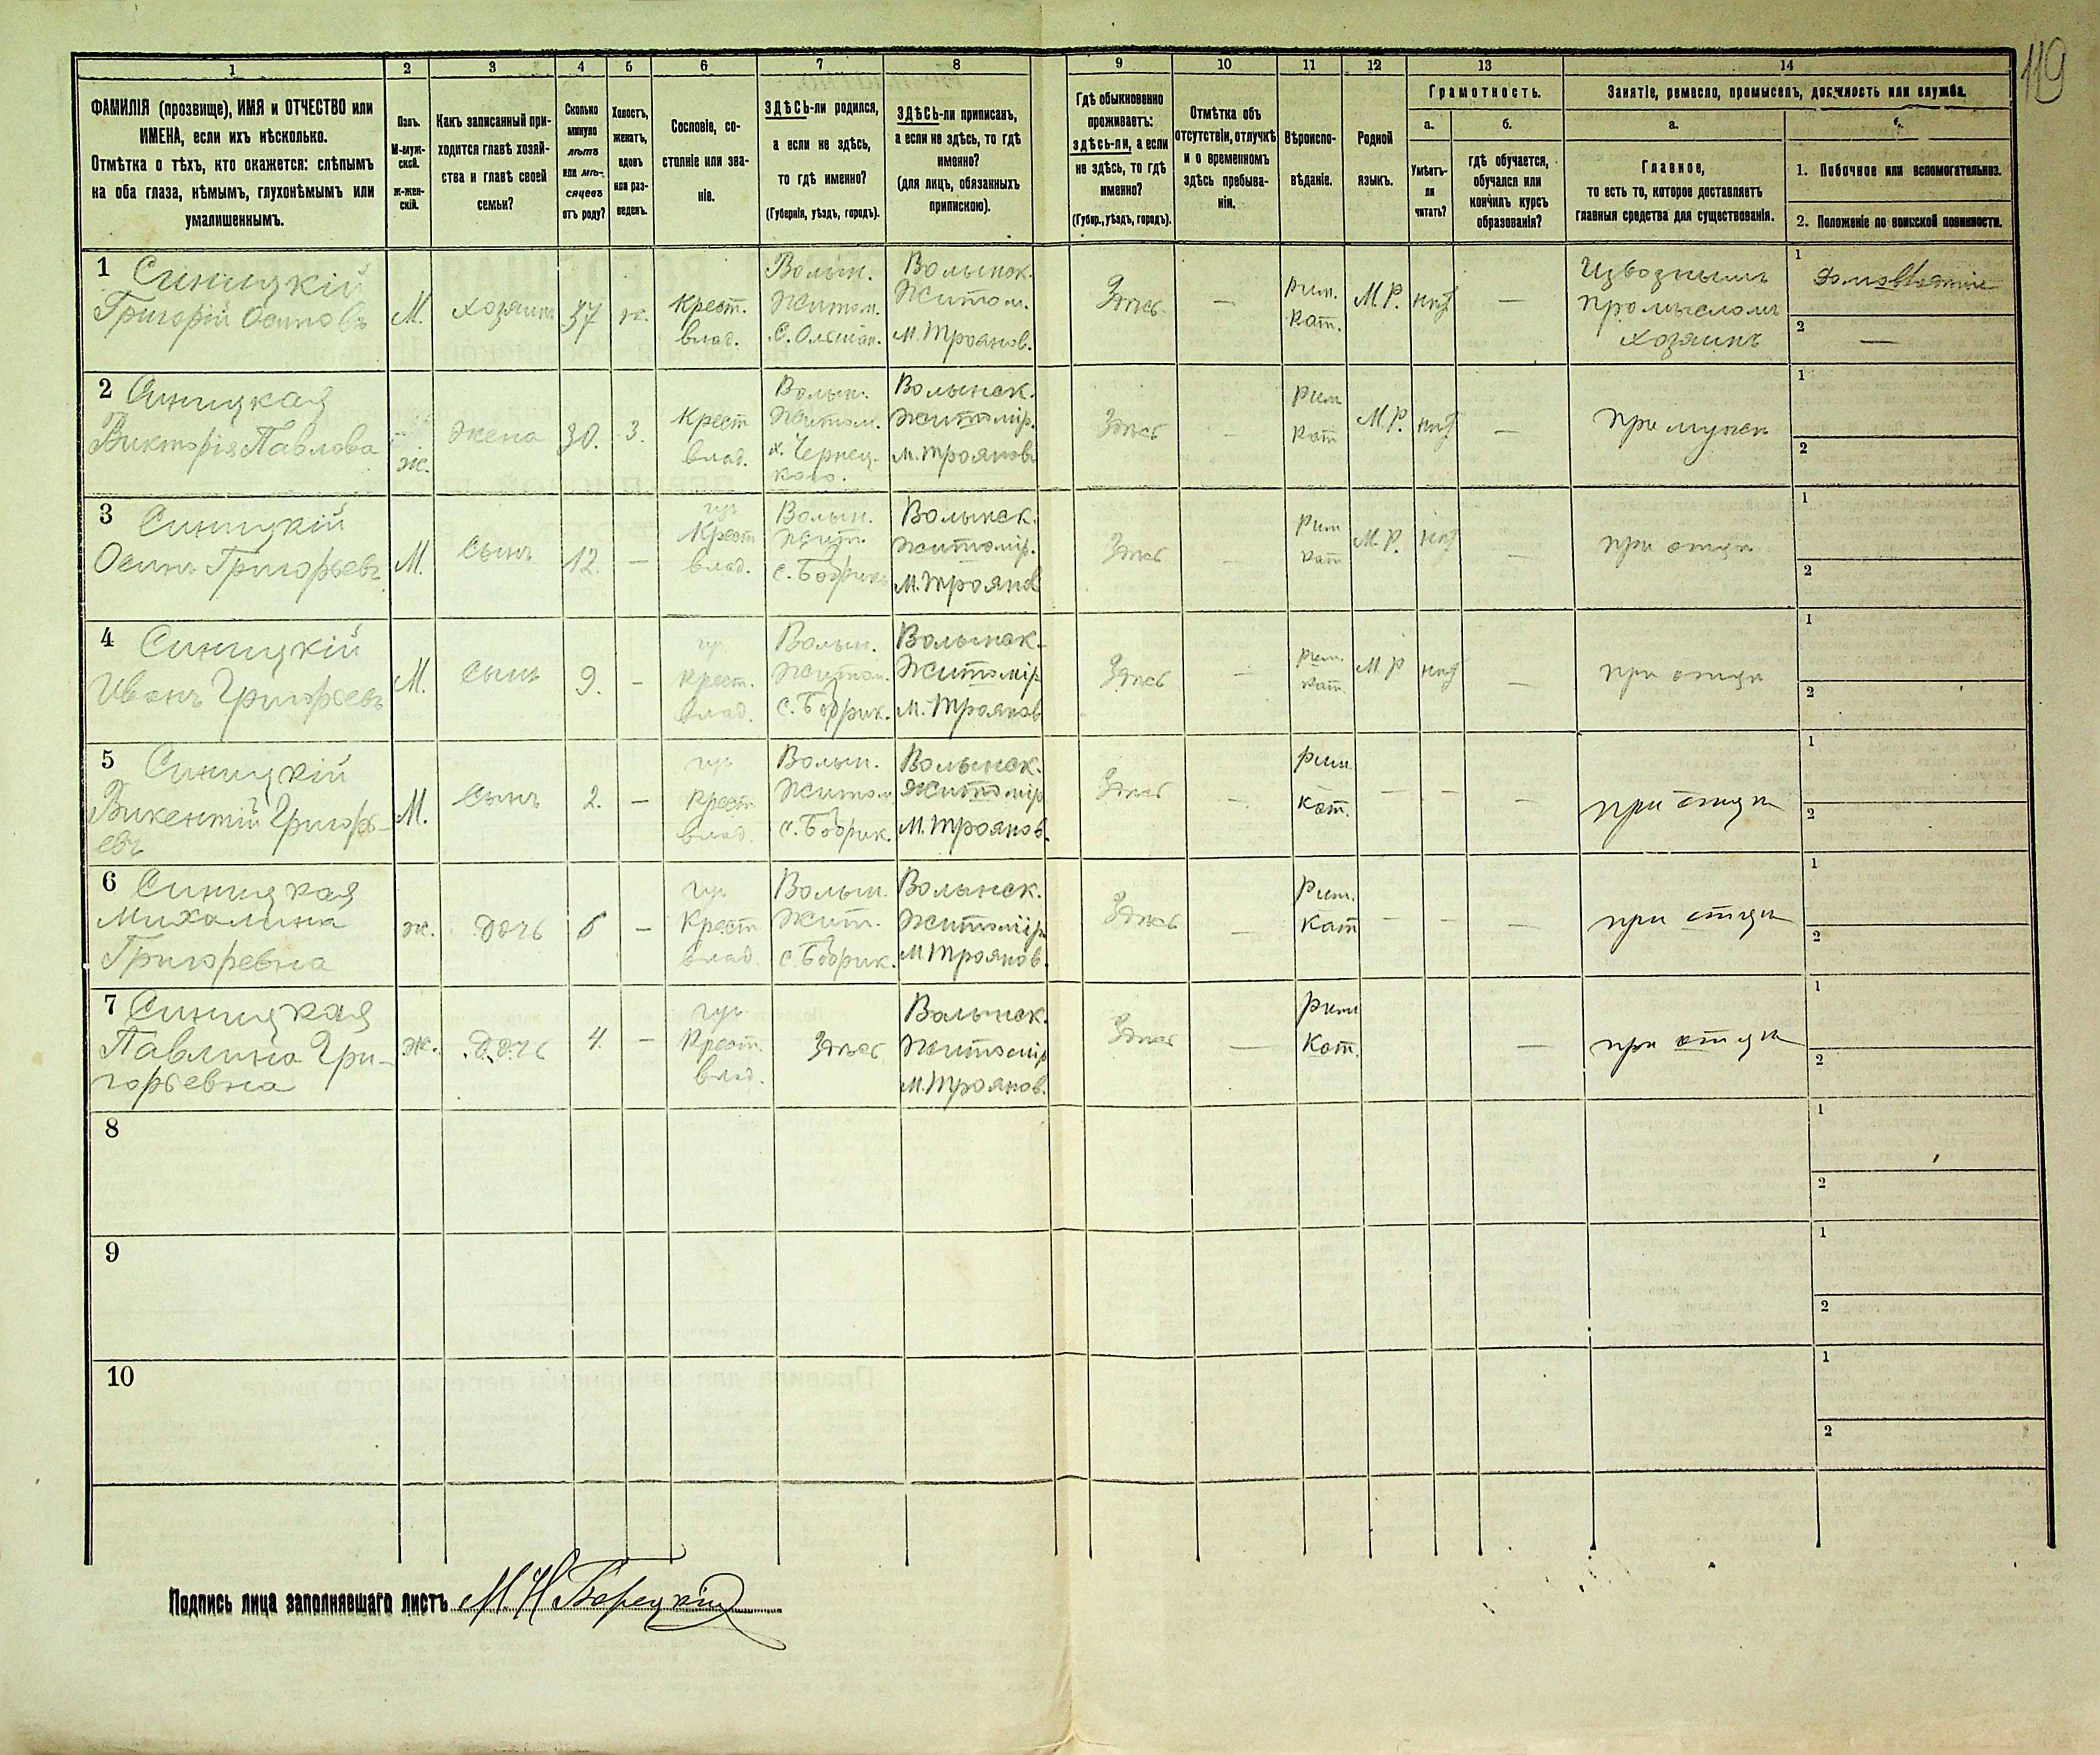 119
1 2 3 4 5 6 7 8 9 10 11 12 13 14
ФАМИЛІЯ (прозвище), ИМЯ и ОТЧЕСТВО или
ИМЕНА, если ихъ нѣсколько.
Отмѣтка о тѣхъ, кто окажется: слѣпымъ
на оба глаза, нѣмымъ, глухонѣмымъ или
умалишеннымъ.
Полъ.
М-муж-
ской.
ж-жен-
скій.
Какъ записанный при-
ходится главѣ хозяй-
ства и главѣ своей
семьи?
Сколько
минуло
лѣтъ
или мѣ-
сяцевъ
отъ роду?
Холостъ,
женатъ,
вдовъ
или раз-
веденъ.
Сословіе, со-
стояніе или зва-
ніе.
ЗДѢСЬ-ли родился,
а если не здѣсь,
то гдѣ именно?
(Губернія, уѣздъ, городъ).
ЗДѢСЬ-ли приписанъ,
а если не здѣсь, то гдѣ
именно?
(для лицъ, обязанныхъ
припискою).
Гдѣ обыкновенно
проживаетъ:
здѣсь-ли, а если
не здѣсь, то гдѣ
именно?
(Губер., уѣздъ, городъ).
Отмѣтка объ
отсутствіи, отлучкѣ
и о временномъ
здѣсь пребыва-
ніи.
Вѣроиспо-
вѣданіе.
Родной
языкъ.
Грамотность.
а.
Умѣетъ-
ли
читать?
б.
гдѣ обучается,
обучался или
кончилъ курсъ
образованія?
Занятіе, ремесло, промыселъ, должность или служба.
а.
Главное,
то есть то, которое доставляетъ
главныя средства для существованія.
1. Побочное или вспомогательное.
2. Положеніе по воинской повинности.
1 Синицкій
Григорій Осиповъ
М.
хозяинъ
37
ж.
Крест.
влад.
Волын.
Житом.
Волынск.
Житом.
м. Троянов.
Здѣсь.
—
Рим.
Кат.
М.Р.
нѣт
—
Извознымъ
промысломъ
хозяинъ
1
2 —
2 Синицкая
Викторія Павлова
ж.
жена
30.
З.
Крест
влад.
Волын.
Житом.
х. Чернец-
кого.
Волынск.
Житомір.
м. Троянов
Здѣсь
—
Рим
Кат
М.Р.
нѣт
—
при мужѣ
1
2
3 Синицкій
Осипъ Григорьевъ
М.
Сынъ
12.
—
Крест
влад.
Волын.
Жит.
с. Бобрик
Волынск.
Житомір.
М. Троянов
Здѣсь
—
Рим
Кат
М.Р.
нѣт
—
при отцѣ
1
2
4 Синицкій
Иванъ Григорьевъ
М.
Сынъ
9.
—
Крест.
влад.
Волын.
Житом.
с. Бобрик.
Волынск.
Житомір
М. Троянов
Здѣсь
—
Рим.
Кат.
М.Р
нѣт
—
при отцѣ
1
2
5 Синицкій
Викентій Григорь-
евъ
М.
Сынъ
2.
—
Крест
влад.
Волын.
Житом
с. Бобрик.
Волынск.
Житомір
М. Троянов.
Здѣсь
—
Рим.
Кат.
—
—
—
при отцѣ
1
2
6 Синицкая
Михалина
Григоревна
ж.
дочь
6
—
Крест
влад
Волын.
Жит.
с. Бобрик.
Волынск.
Житомір
М Троянов.
Здѣсь
—
Рим.
Кат
—
—
—
при отцѣ
1
2
7 Синицкая
Павлина Гри-
горьевна
ж.
дочь
4.
—
Крест.
влад.
Здѣсь
Волынск.
Житомір
М. Троянов.
Здѣсь
—
Рим
Кат.
—
при отцѣ
1
2
8
1
2
9
1
2
10
1
2
Подпись лица заполнявшаго листъ